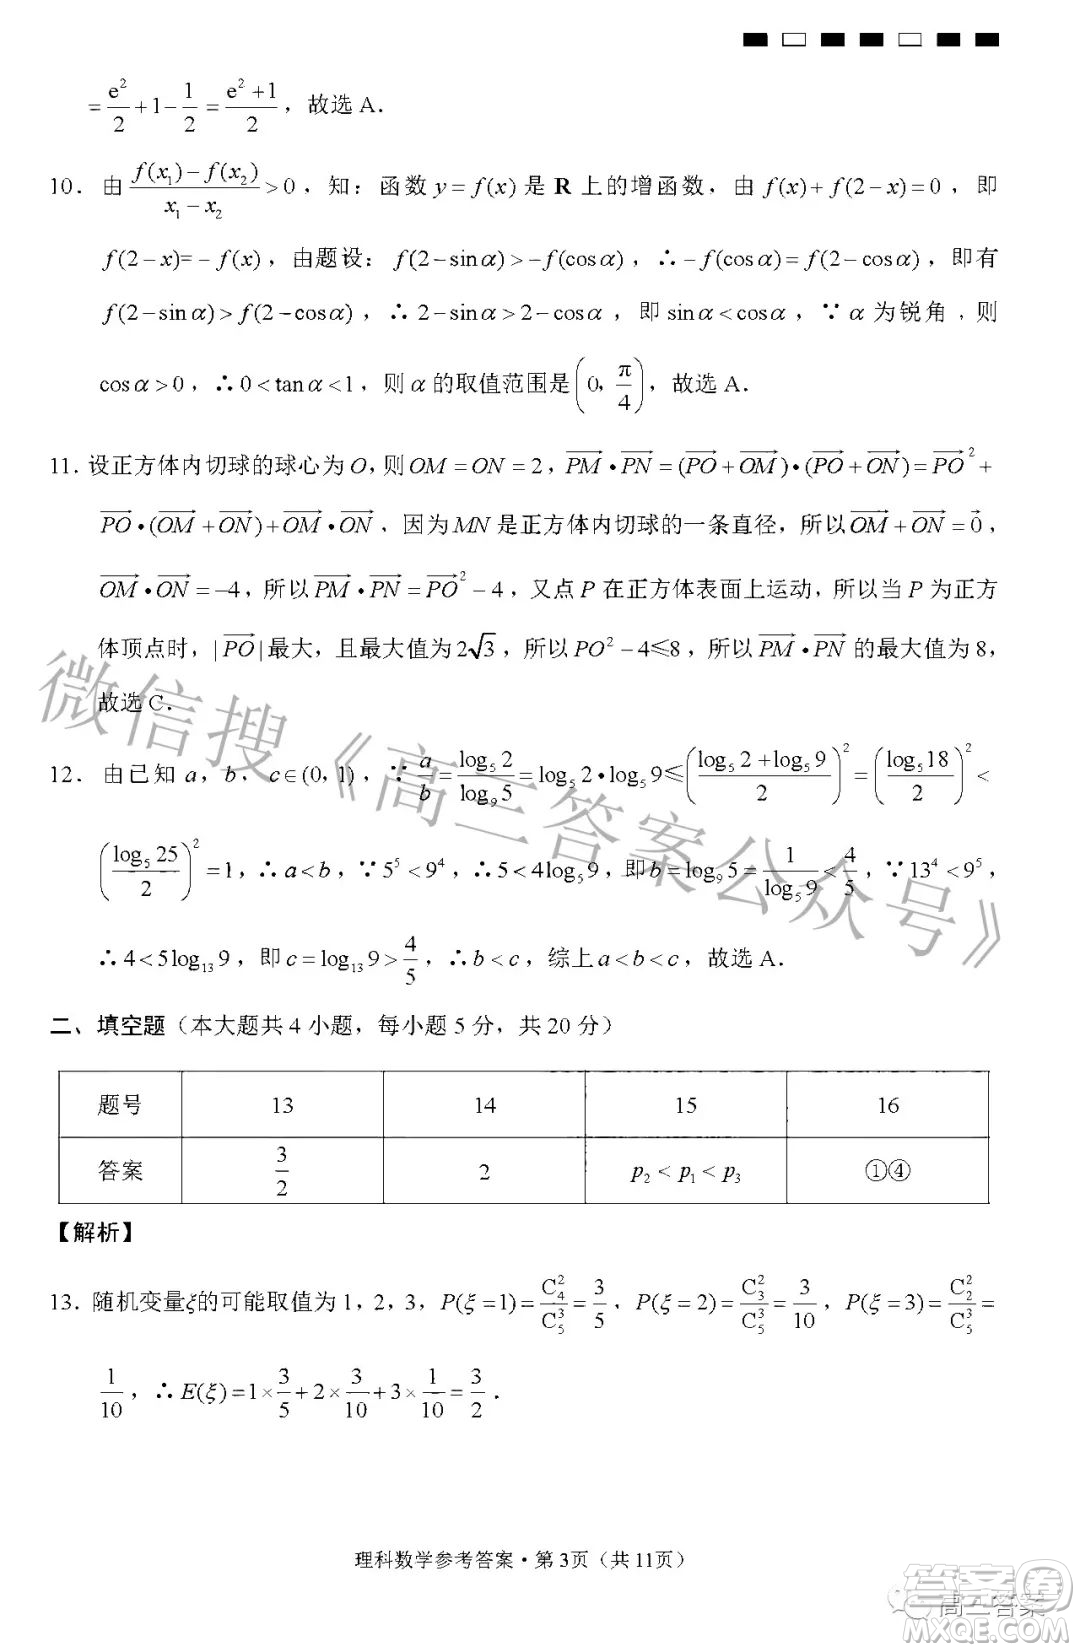 = e²/2 + 1 − 1/2 = (e²+1)/2，故选 A．
10．由 (f(x₁)−f(x₂))/(x₁−x₂) >0，知：函数 y=f(x) 是 R 上的增函数，由 f(x)+f(2−x)=0，即
f(2−x)=−f(x)，由题设：f(2−sinα)>−f(cosα)，∴−f(cosα)=f(2−cosα)，即有
f(2−sinα)>f(2−cosα)，∴2−sinα>2−cosα，即 sinα<cosα，∵α 为锐角，则
cosα>0，∴0<tanα<1，则 α 的取值范围是(0, π/4)，故选 A．
11．设正方体内切球的球心为 O，则 OM=ON=2，PM→•PN→=(PO→+OM→)•(PO→+ON→)=PO→²+
PO→•(OM→+ON→)+OM→•ON→，因为MN是正方体内切球的一条直径，所以OM→+ON→=0→，
OM→•ON→=−4，所以PM→•PN→=PO→²−4，又点 P 在正方体表面上运动，所以当 P 为正方
体顶点时，|PO→|最大，且最大值为2√3，所以PO²−4≤8，所以PM→•PN→的最大值为 8，
故选 C．
12．由已知 a，b，c∈(0, 1)，∵a/b=log₅2/log₉5=log₅2•log₅9≤((log₅2+log₅9)/2)²=(log₅18/2)²<
(log₅25/2)²=1，∴a<b，∵5⁵<9⁴，∴5<4log₅9，即b=log₉5=1/log₅9<4/5，∵13⁴<9⁵，
∴4<5log₁₃9，即 c=log₁₃9>4/5，∴b<c，综上a<b<c，故选 A．
二、填空题（本大题共 4 小题，每小题 5 分，共 20 分）
题号 13 14 15 16
答案 3/2 2 p₂<p₁<p₃ ①④
【解析】
13．随机变量ξ的可能取值为 1，2，3，P(ξ=1)=C₄²/C₅³=3/5，P(ξ=2)=C₃²/C₅³=3/10，P(ξ=3)=C₂²/C₅³=
1/10，∴E(ξ)=1×3/5+2×3/10+3×1/10=3/2．
理科数学参考答案・第 3页（共 11页）
微信搜《高三答案公众号》
答案圈
高三答案
MXQE.COM